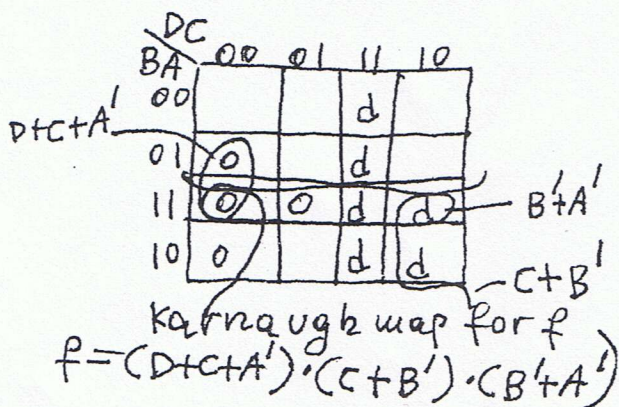 DC
BA 00 01 11 10
00 d
D+C+A'
01 0 d
11 0 0 d d B'+A'
10 0 d d
C+B'
Karnaugh map for f
f=(D+C+A')·(C+B')·(B'+A')